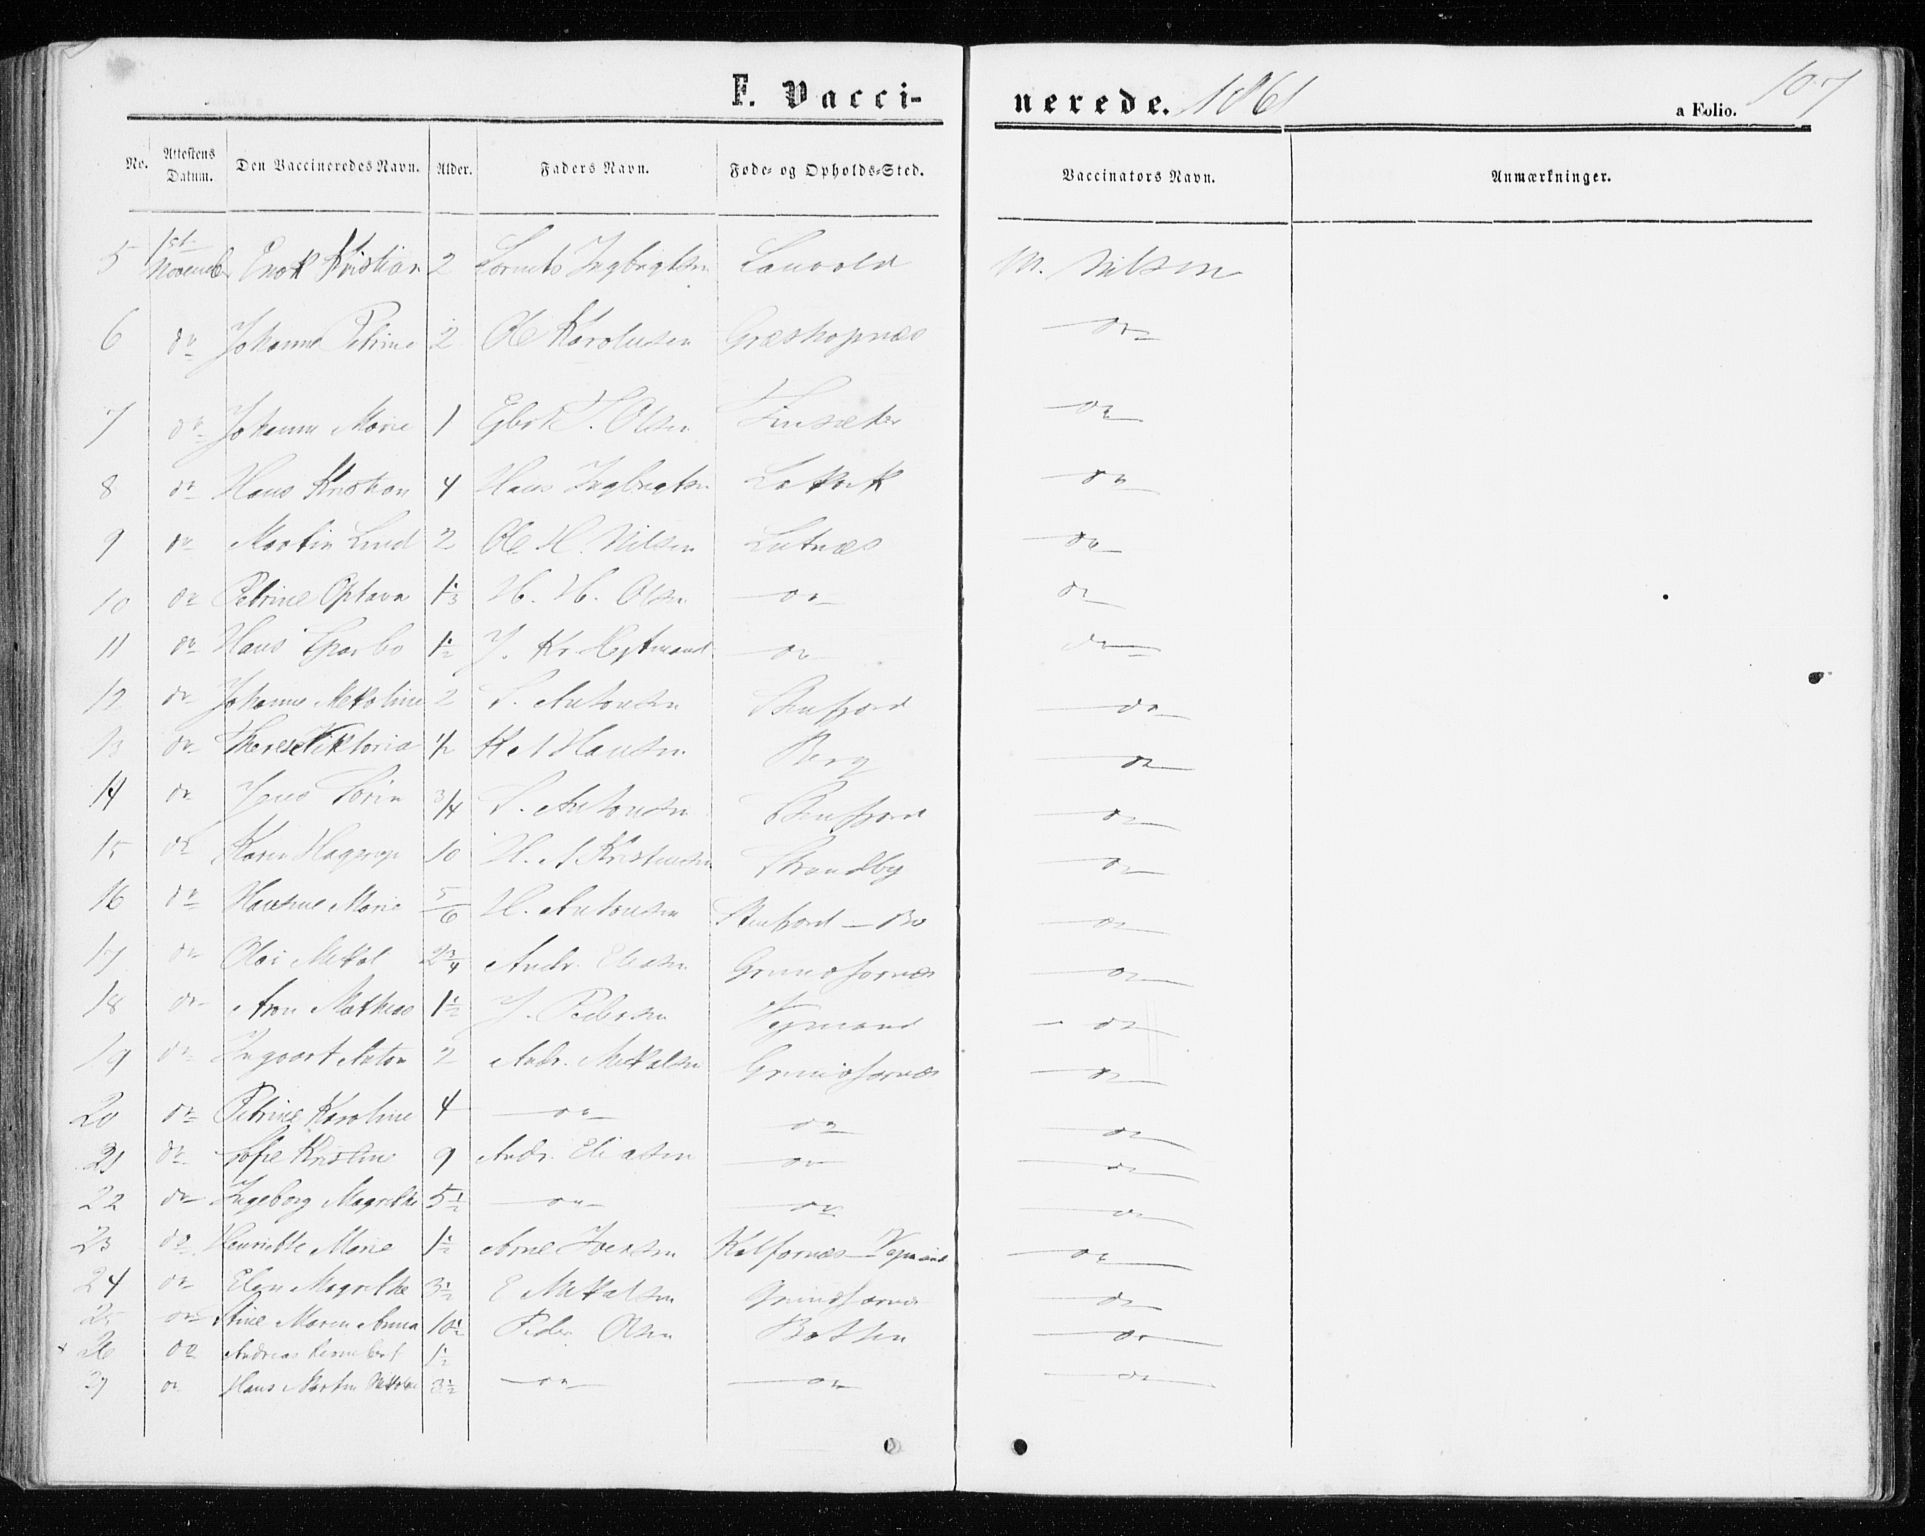 F. Vacci-nerede. 1861 a Folio. 107
No. Attestens Datum. Den Vaccineredes Navn. Alder. Faders Navn. Føde- og Opholds-Sted. Vaccinators Navn. Anmærkninger.
5 1st Novemb Enok Kristian 2 Lornts Ingbrigtsen M. Nilsen
6 do Johanne Petrine 2 Ole Karolusen Græskopnæs do
7 do Johanne Marie 1 T. Olsen Finsæter do
8 do Hans Kristian 4 Hans Ingbrigtsen Lakvik do
9 do Martin Lind 2 Ole H. Nilsen Lutnæs do
10 do Petrine Optava 1/3 H. H. Olsen do do
11 do Hans Sparbo 1½ J. Kr. Hejtmand do do
12 do Johanne Mekoline 2 S. Antonsen Stenfjord do
13 do Therese Viktoria ½ K A Hansen Berg do
14 do Jens Sørin 3/4 S. Antonsen Stenfjord do
15 do Karen Hagerup 10 H. A Kristensen Strandby do
16 do Hansine Marie 5/6 H. Antonsen Stenfjord – Bo do
17 do Olai Mekal 2¾ Andr. Eliasen Grundfarnæs do
18 do Aron Mathias 1½ J. Pedersen do
19 do Ingvart Anton 2 Andr. Mekalsen Grundfarnæs do
20 do Petrine Karoline 4 do do do
21 do Sofie Kristine 9 Andr. Eliasen do do
22 do Ingeborg Magrethe 5½ do do do
23 do Henriette Marie 1½ Arne Iversen Kalfarnæs do
24 do Elen Magrethe 3½ E Mekalsen Grundfarnæs do
25 do Stine Maren Anna 10½ Peder Olsen Botten do
26 do Andreas 1½
27 do Hans Martin 3½ do do do